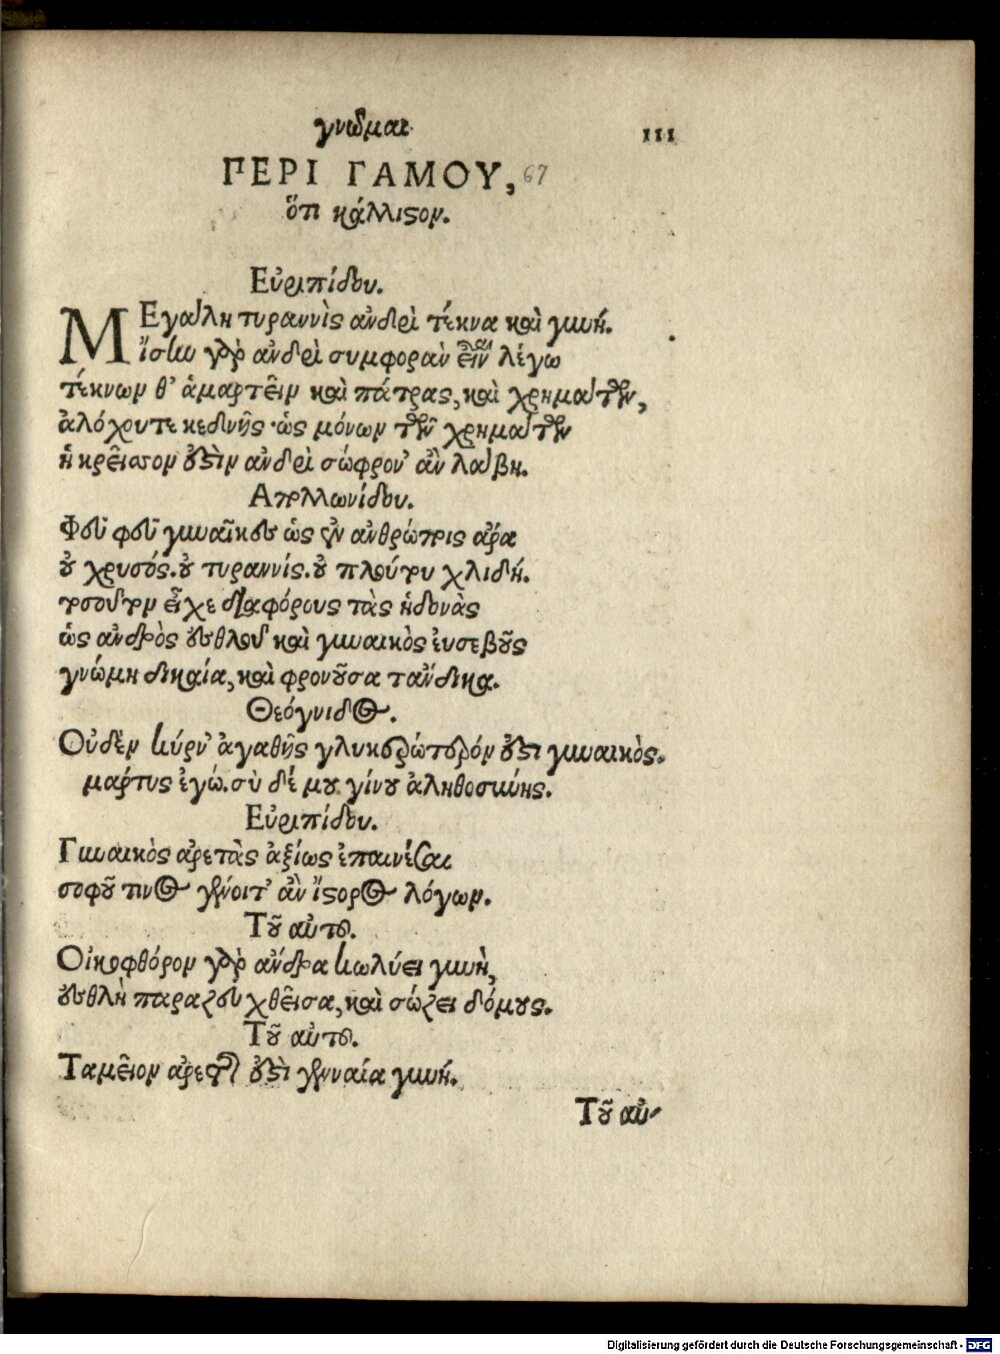 γνῶμαι
111
ΠΕΡΙ ΓΑΜΟΥ, 67
ὅτι κάλλιστον.
Εὐριπίδου.
ΜΕγάλη τυραννὶς ἀνδρὶ τέκνα καὶ γυνή.
ἴσην γὰρ ἀνδρὶ συμφορὰν εἶναι λέγω
τέκνων θ' ἁμαρτεῖν καὶ πάτρας, καὶ χρημάτων,
ἀλόχου τε κεδνῆς· ὡς μόνων τῶν χρημάτων
ἢ κρεῖσσον ἐστὶν ἀνδρὶ σώφρον' ἂν λάβη.
Απολλωνίδου.
Φεῦ φεῦ γυναῖκες ὡς ἐν ἀνθρώποις ἄρα
οὐ χρυσός. οὐ τυραννίς. οὐ πλούτου χλιδή.
τοσοῦτον εἶχε διαφόρους τὰς ἡδονὰς
ὡς ἀνδρὸς ἐσθλοῦ καὶ γυναικὸς εὐσεβοῦς
γνώμη δικαία, καὶ φρονοῦσα τἄνδικα.
Θεόγνιδος.
Οὐδὲν κύρν' ἀγαθῆς γλυκερώτερόν ἐστι γυναικὸς.
μάρτυς ἐγώ. σὺ δέ μου γίνου ἀληθοσύνης.
Εὐριπίδου.
Γυναικὸς ἀρετὰς ἀξίως ἐπαινέσαι
σοφοῦ τινος γένοιτ' ἂν ἵστορος λόγων.
Τοῦ αὐτοῦ.
Οἰκοφθόρον γὰρ ἄνδρα κωλύει γυνὴ,
ἐσθλὴ παραζευχθεῖσα, καὶ σώζει δόμους.
Τοῦ αὐτοῦ.
Ταμεῖον ἀρετῆς ἐστὶ γενναία γυνή.
Τοῦ αὐ-
Digitalisierung gefördert durch die Deutsche Forschungsgemeinschaft - DFG